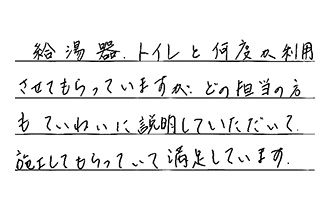 給湯器、トイレと何度か利用
させてもらっていますが、どの担当の方
もていねいに説明していただいて、
施工してもらっていて満足しています。